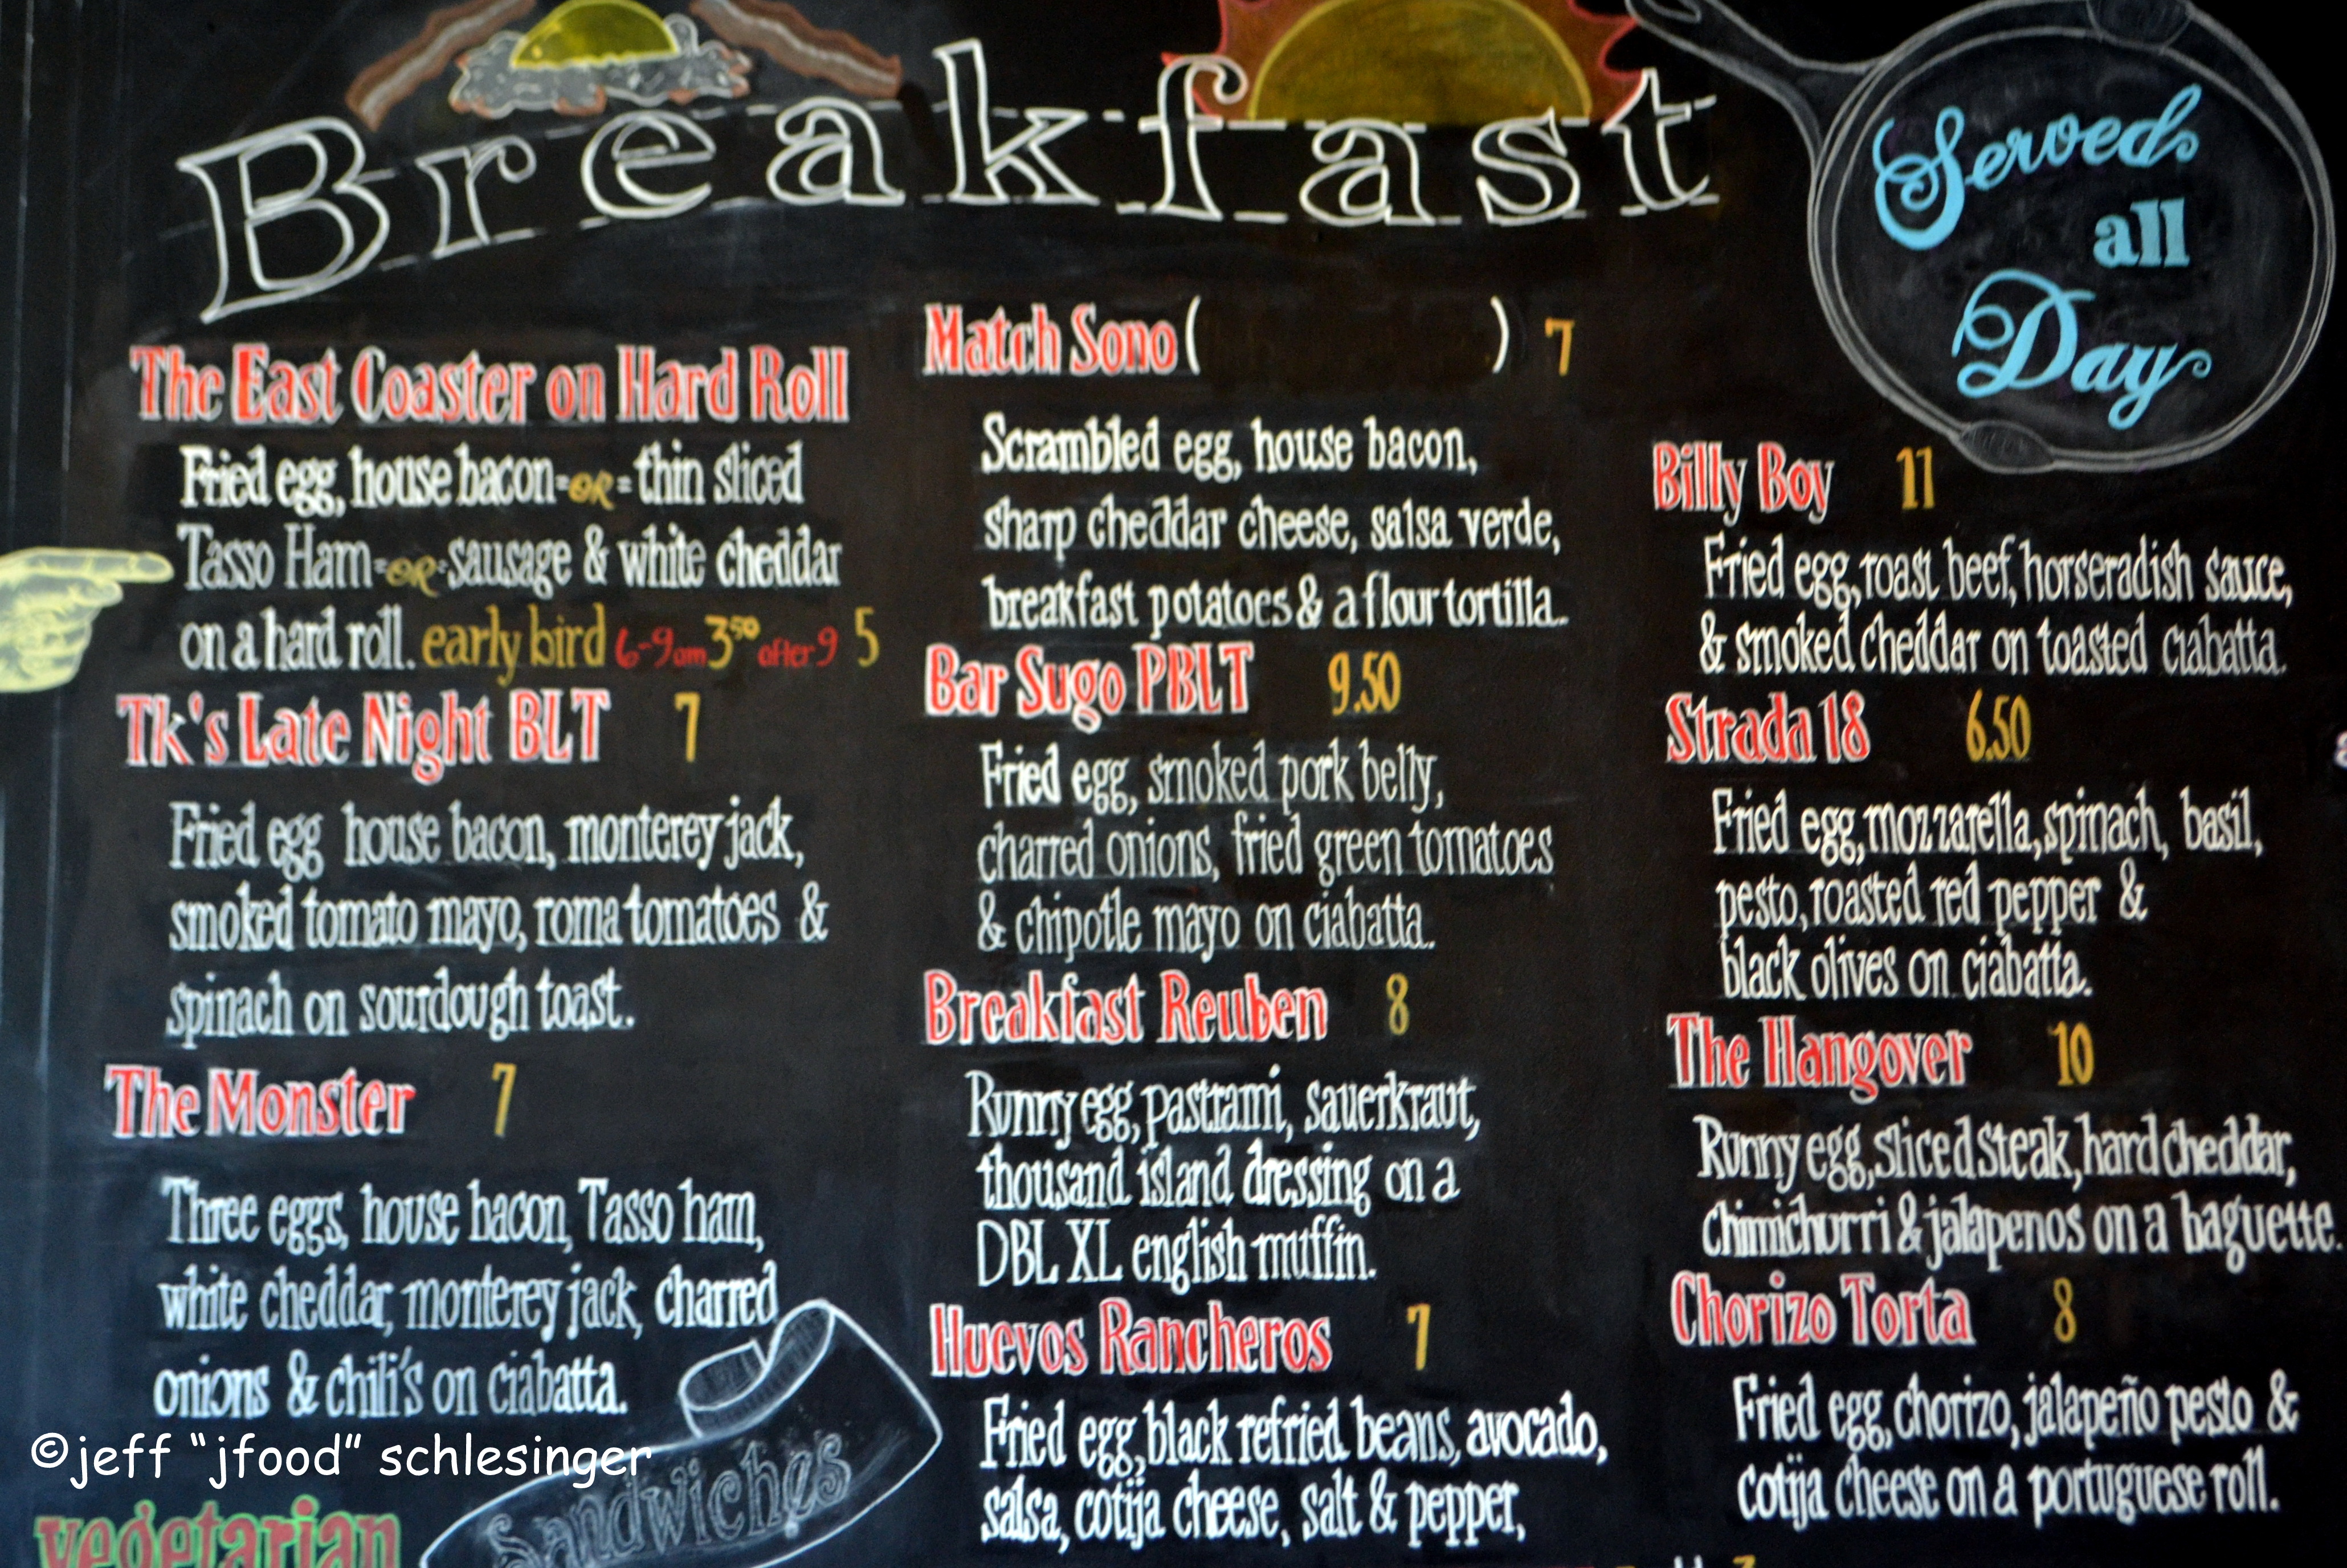 Breakfast
Served
all
Day
The East Coaster on Hard Roll
Fried egg, house bacon =OR= thin sliced
Tasso Ham =OR= sausage & white cheddar
on a hard roll. early bird 6-9am 3⁵⁰ after 9 5
Tk's Late Night BLT 7
Fried egg house bacon, monterey jack,
smoked tomato mayo, roma tomatoes &
spinach on sourdough toast.
The Monster 7
Three eggs, house bacon, Tasso ham,
white cheddar, monterey jack, charred
onions & chili's on ciabatta.
Sandwiches
©jeff "jfood" schlesinger
vegetarian
Match Sono ( ) 7
Scrambled egg, house bacon,
sharp cheddar cheese, salsa verde,
breakfast potatoes & a flour tortilla.
Bar Sugo PBLT 9.50
Fried egg, smoked pork belly,
charred onions, fried green tomatoes
& chipotle mayo on ciabatta.
Breakfast Reuben 8
Runny egg, pastrami, sauerkraut,
thousand island dressing on a
DBL XL english muffin.
Huevos Rancheros 7
Fried egg, black refried beans, avocado,
salsa, cotija cheese, salt & pepper,
Billy Boy 11
Fried egg, roast beef, horseradish sauce,
& smoked cheddar on toasted ciabatta.
Strada 18 6.50
Fried egg, mozzarella, spinach, basil,
pesto, roasted red pepper &
black olives on ciabatta.
The Hangover 10
Runny egg, sliced steak, hard cheddar,
chimichurri & jalapenos on a baguette.
Chorizo Torta 8
Fried egg, chorizo, jalapeño pesto &
cotija cheese on a portuguese roll.